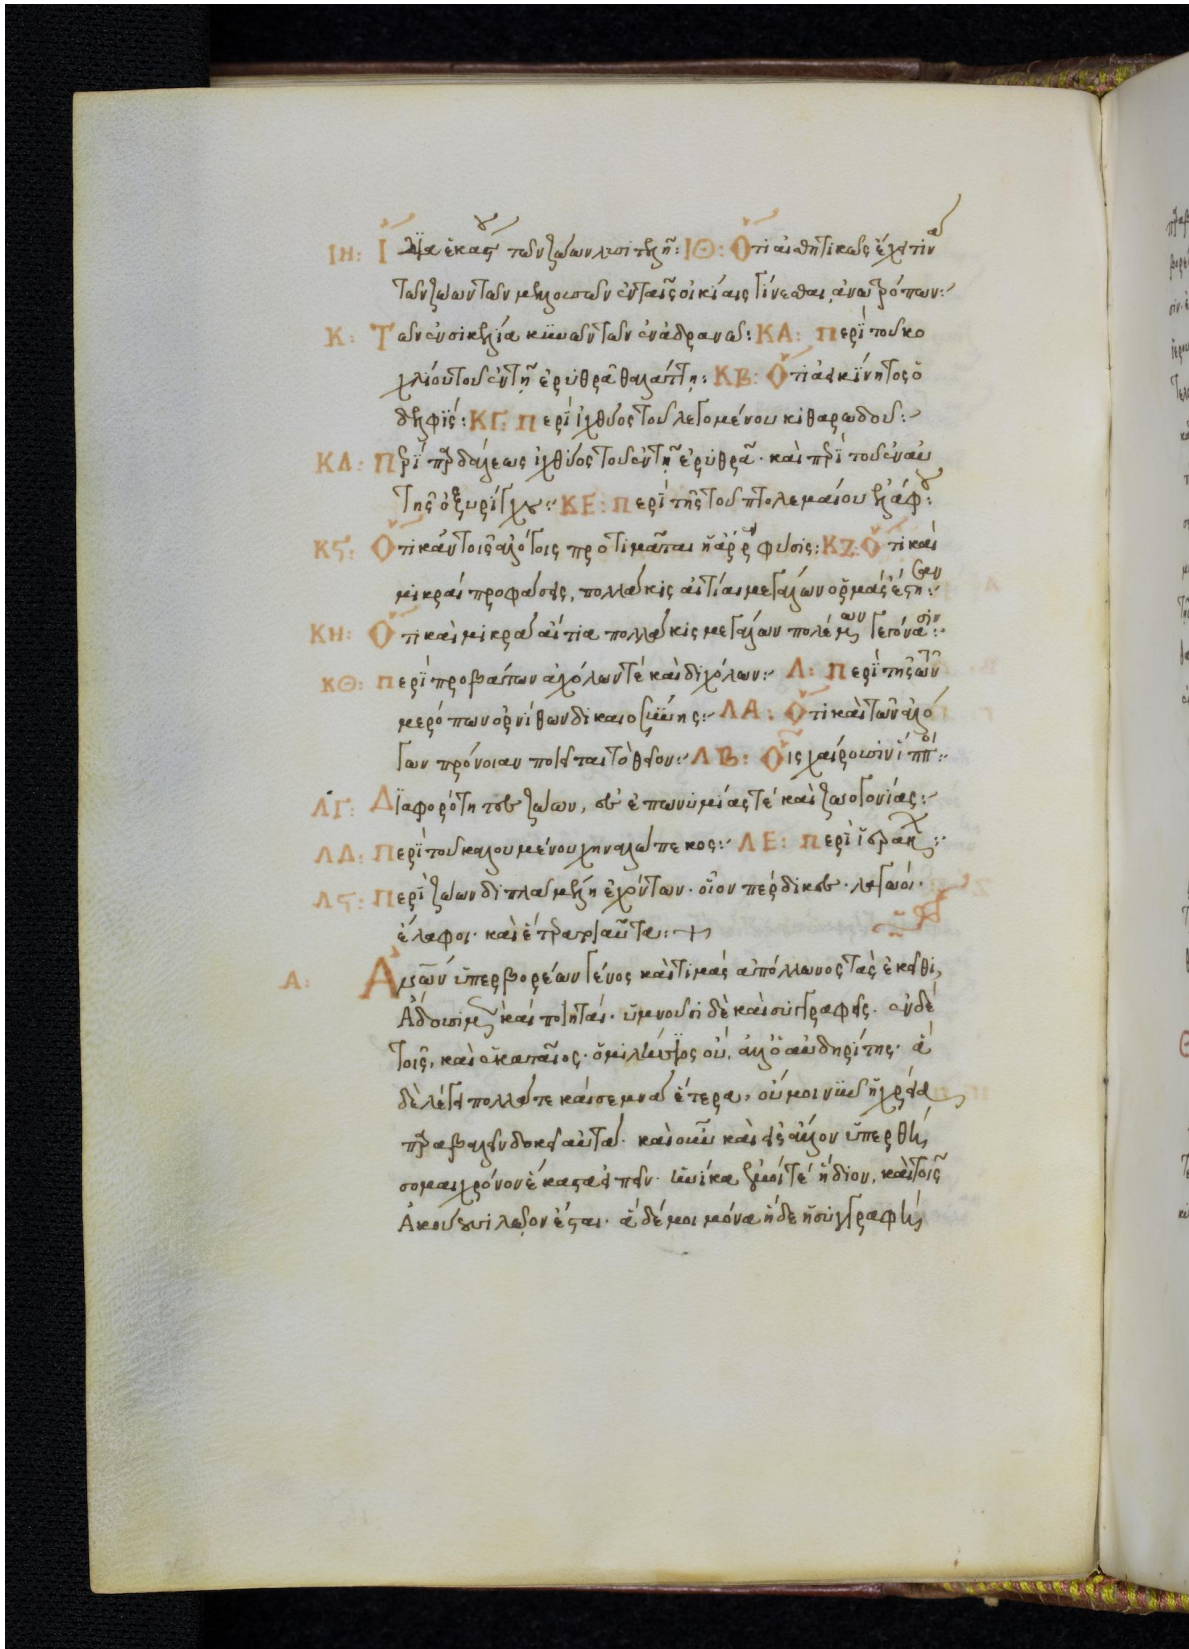 ΙΗ: Ἴδια ἑκάστου τῶν ζώων λυσιτελῆ: ΙΘ: Ὅτι αἰσθητικῶς ἔχει τινὰ
τῶν ζώων τῶν μελλουσῶν ἐν ταῖς οἰκίαις γίνεσθαι ἀνατρόπων:
Κ: Τῶν ἐν σικελία κυνῶν τῶν ἐν ἀδρανῶ: ΚΑ: Περὶ τοῦ κο
χλίου τοῦ ἐν τῇ ἐρυθρᾶ θαλάττῃ: ΚΒ: Ὅτι ἀεικίνητος ὁ
δελφίς: ΚΓ: Περὶ ἰχθύος τοῦ λεγομένου κιθαρωδοῦ:
ΚΔ: Περὶ παρδάλεως ἰχθύος τοῦ ἐν τῇ ἐρυθρᾶ. καὶ περὶ τοῦ ἐν αὐ
τῆς ὀξυρύγχου: ΚΕ: Περὶ τῆς τοῦ πτολεμαίου ἐλάφου:
Κϛ: Ὅτι κἀν τοῖς ἀλόγοις προτιμᾶται ἡ ἄρρην φύσις: ΚΖ: Ὅτι καὶ
μικραὶ προφάσεις, πολλάκις αἰτίαι μεγάλων ὁρμὰς ἔστησεν:
ΚΗ: Ὅτι καὶ μικρὰ αἰτία πολλάκις μεγάλων πολέμων γέγονασιν:
ΚΘ: Περὶ προβάτων ἀχόλων τὲ καὶ διχόλων: Λ: Περὶ τῆς τῶν
μερόπων ὀρνίθων δικαιοσύνης: ΛΑ: Ὅτι καὶ τῶν ἀλό
γων πρόνοιαν ποιεῖται τὸ θεῖον: ΛΒ: Οἷς χαίρουσιν ἵπποι:
ΛΓ: Διαφορότη τῶν ζώων, τῶν ἐπωνυμίας τὲ καὶ ζωογονίας:
ΛΔ: Περὶ τοῦ καλουμένου χηναλώπεκος: ΛΕ: Περὶ ἱεράκων:
Λϛ: Περὶ ζώων διπλᾶ μέλη ἐχόντων. οἷον πέρδικων. λαγωοί.
ἔλαφοι. καὶ ἕτερα τοιαῦτα:
Α: Ἀνθρώπων ὑπερβορέων γένος καὶ τιμὰς ἀπόλλωνος τὰς ἐκεῖθι,
Ἄδουσι μὲν καὶ ποιηταί. ὑμνοῦσι δὲ καὶ συγγραφεῖς. ἐν δὲ
τοῖς, καὶ ἑκαταῖος. ὁ μιλήσιος οὔ, ἀλλ' ὁ αὐδηρίτης. ἃ
δὲ λέγει πολλά τε καὶ σεμνὰ ἕτερα, οὔ μοι νῦν ἡ χρεία
παραβαλεῖν δοκεῖ αὐτά. καὶ οὖν καὶ εἰς ἄλλον ὑπερθή
σομαι χρόνον ἕκαστα εἰπεῖν. ἡνίκα ἐμοί τε ἥδιον, καὶ τοῖς
Ἀκούουσι λῷον ἔσται. ἃ δέ μοι μόνα ἥδε ἡ συγγραφὴ